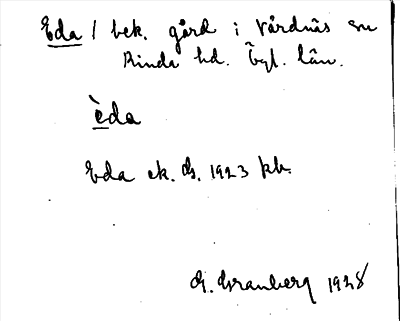 Eda / bek. gård i Vårdnäs sn
Kinda hd. Ögl. län.
èda
Eda ek. G. 1923 kb.
G. Granberg 1928